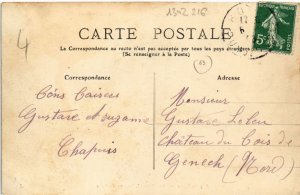 1342 216
4
CARTE POSTALE
La Correspondance au recto n'est pas acceptée par tous les pays étrangers
(Se renseigner à la Poste)
Correspondance
Adresse
Bons Baisers
Gustave
Chapuis
Monsieur
Gustave Lebeu
Château du Bois de
Genech (Nord)